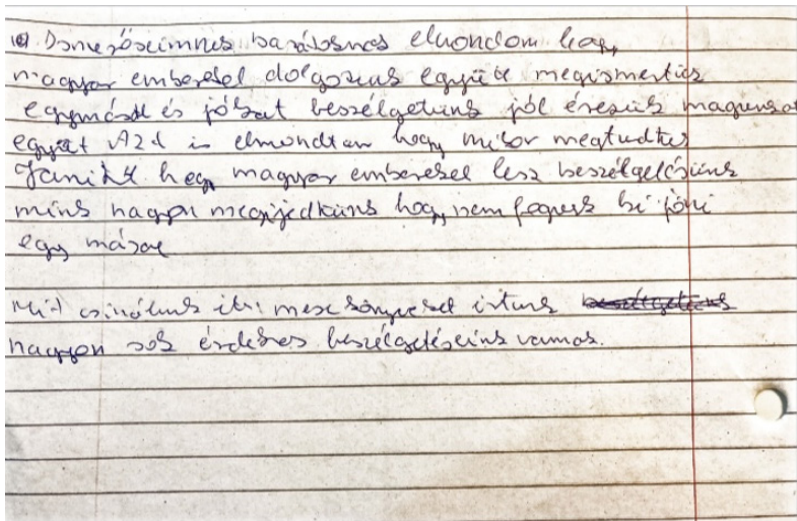 Ismerőseimnek barátoknak elmondom hogy
magyar emberekel dolgozunk együtt megismertük
egymást és jókat beszélgetünk jól érezük magunkat
együt Azt is elmondtam hogy mikor megtudtuk
hogy magyar emberekel lesz beszélgetésünk
mink nagyon megijedtünk hogy nem fogunk ki jöni
egy másal
Mit csinálunk itt: mese könyveket irtunk
nagyon sok érdekes beszélgetéseink vannak.